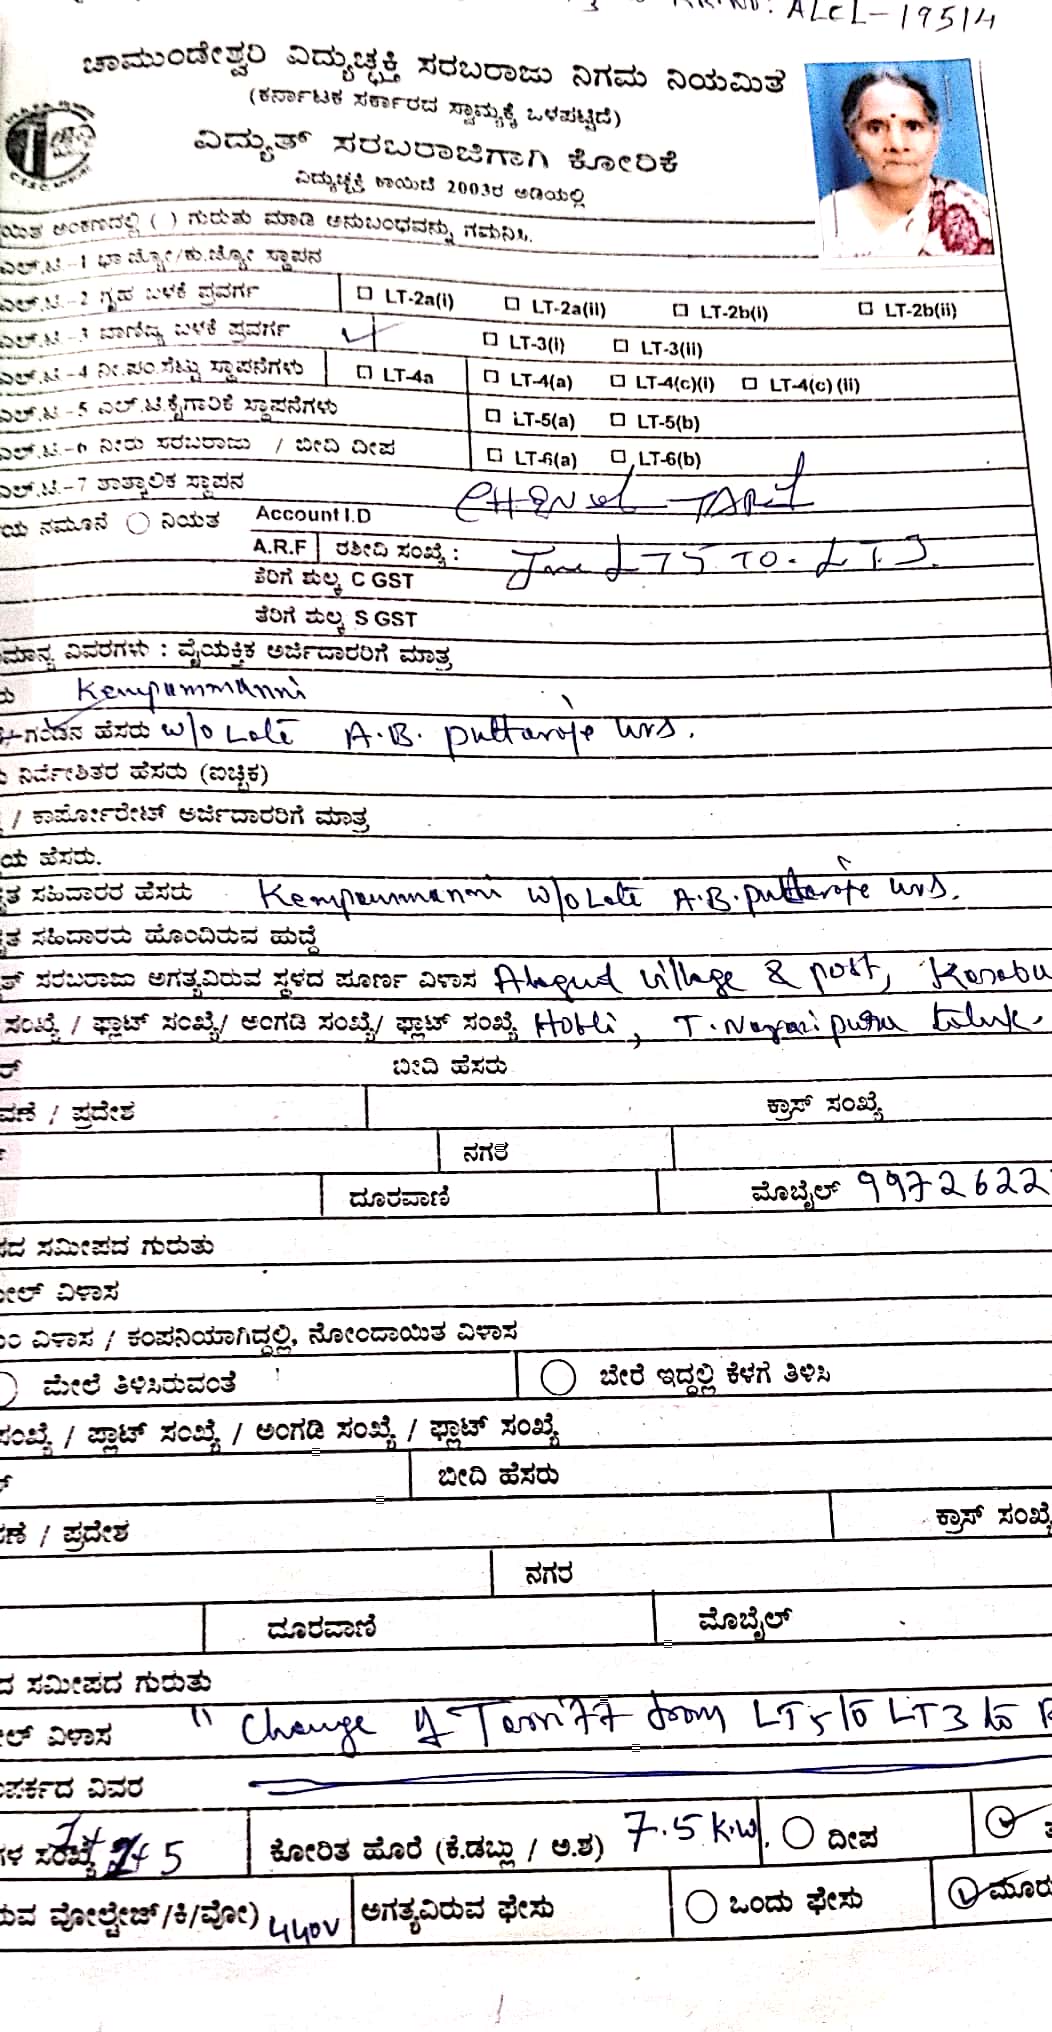 RR.NO: ALCL-19514
ಚಾಮುಂಡೇಶ್ವರಿ ವಿದ್ಯುಚ್ಛಕ್ತಿ ಸರಬರಾಜು ನಿಗಮ ನಿಯಮಿತ
(ಕರ್ನಾಟಕ ಸರ್ಕಾರದ ಸ್ವಾಮ್ಯಕ್ಕೆ ಒಳಪಟ್ಟಿದೆ)
ವಿದ್ಯುತ್ ಸರಬರಾಜಿಗಾಗಿ ಕೋರಿಕೆ
ವಿದ್ಯುಚ್ಛಕ್ತಿ ಕಾಯಿದೆ 2003ರ ಅಡಿಯಲ್ಲಿ
ಯಿತ ಅಂಕಣದಲ್ಲಿ ( ) ಗುರುತು ಮಾಡಿ ಅನುಬಂಧವನ್ನು ಗಮನಿಸಿ.
ಎಲ್.ಟಿ-1 ಭಾ ಜ್ಯೋ/ಕು.ಜ್ಯೋ ಸ್ಥಾಪನ
ಎಲ್.ಟಿ-2 ಗೃಹ ಬಳಕೆ ಪ್ರವರ್ಗ LT-2a(i) LT-2a(ii) LT-2b(i) LT-2b(ii)
ಎಲ್.ಟಿ-3 ವಾಣಿಜ್ಯ ಬಳಕೆ ಪ್ರವರ್ಗ LT-3(i) LT-3(ii)
ಎಲ್.ಟಿ-4 ನೀ.ಪಂ.ಸೆಟ್ಟು ಸ್ಥಾಪನೆಗಳು LT-4a LT-4(a) LT-4(c)(i) LT-4(c)(ii)
ಎಲ್.ಟಿ-5 ಎಲ್.ಟಿ.ಕೈಗಾರಿಕೆ ಸ್ಥಾಪನೆಗಳು LT-5(a) LT-5(b)
ಎಲ್.ಟಿ-6 ನೀರು ಸರಬರಾಜು / ಬೀದಿ ದೀಪ LT-6(a) LT-6(b)
ಎಲ್.ಟಿ-7 ತಾತ್ಕಾಲಿಕ ಸ್ಥಾಪನ
ಯ ನಮೂನೆ ನಿಯತ Account I.D
A.R.F ರಶೀದಿ ಸಂಖ್ಯೆ :
ತೆರಿಗೆ ಶುಲ್ಕ C GST
ತೆರಿಗೆ ಶುಲ್ಕ S GST
ಮಾನ್ಯ ವಿವರಗಳು : ವೈಯಕ್ತಿಕ ಅರ್ಜಿದಾರರಿಗೆ ಮಾತ್ರ
ರು Kempammanni
ಗಂಡನ ಹೆಸರು W/o Late A.B. puttaraje urs.
ನಿರ್ದೇಶಿತರ ಹೆಸರು (ಐಚ್ಛಿಕ)
/ ಕಾರ್ಪೋರೇಟ್ ಅರ್ಜಿದಾರರಿಗೆ ಮಾತ್ರ
ಯ ಹೆಸರು.
ತ ಸಹಿದಾರರ ಹೆಸರು Kempammanni W/o Late A.B. puttaraje urs.
ತ ಸಹಿದಾರರು ಹೊಂದಿರುವ ಹುದ್ದೆ
ತ್ ಸರಬರಾಜು ಅಗತ್ಯವಿರುವ ಸ್ಥಳದ ಪೂರ್ಣ ವಿಳಾಸ Alagud village & post, Kasaba
ಸಂಖ್ಯೆ / ಫ್ಲಾಟ್ ಸಂಖ್ಯೆ/ ಅಂಗಡಿ ಸಂಖ್ಯೆ/ ಫ್ಲಾಟ್ ಸಂಖ್ಯೆ Hobli, T. Narasipura taluk.
ಬೀದಿ ಹೆಸರು
ವಣೆ / ಪ್ರದೇಶ ಕ್ರಾಸ್ ಸಂಖ್ಯೆ
ನಗರ
ದೂರವಾಣಿ ಮೊಬೈಲ್ 9972622
ದ ಸಮೀಪದ ಗುರುತು
ೕಲ್ ವಿಳಾಸ
ವಿಳಾಸ / ಕಂಪನಿಯಾಗಿದ್ದಲ್ಲಿ, ನೋಂದಾಯಿತ ವಿಳಾಸ
ಮೇಲೆ ತಿಳಿಸಿರುವಂತೆ ಬೇರೆ ಇದ್ದಲ್ಲಿ ಕೆಳಗೆ ತಿಳಿಸಿ
ಸಂಖ್ಯೆ / ಪ್ಲಾಟ್ ಸಂಖ್ಯೆ / ಅಂಗಡಿ ಸಂಖ್ಯೆ / ಫ್ಲಾಟ್ ಸಂಖ್ಯೆ
ಬೀದಿ ಹೆಸರು
ಣೆ / ಪ್ರದೇಶ ಕ್ರಾಸ್ ಸಂಖ್ಯೆ
ನಗರ
ದೂರವಾಣಿ ಮೊಬೈಲ್
ದ ಸಮೀಪದ ಗುರುತು
ಲ್ ವಿಳಾಸ " Change of Tariff from LT5 to LT3 to
ಪರ್ಕದ ವಿವರ
ಗಳ ಸಂಖ್ಯೆ ಕೋರಿತ ಹೊರೆ (ಕೆ.ಡಬ್ಲು / ಅ.ಶ) 7.5 K.W. ದೀಪ
ರುವ ವೋಲ್ಟೇಜ್/ಕಿ/ವೋ) 440V ಅಗತ್ಯವಿರುವ ಫೇಸು ಒಂದು ಫೇಸು ಮೂರು